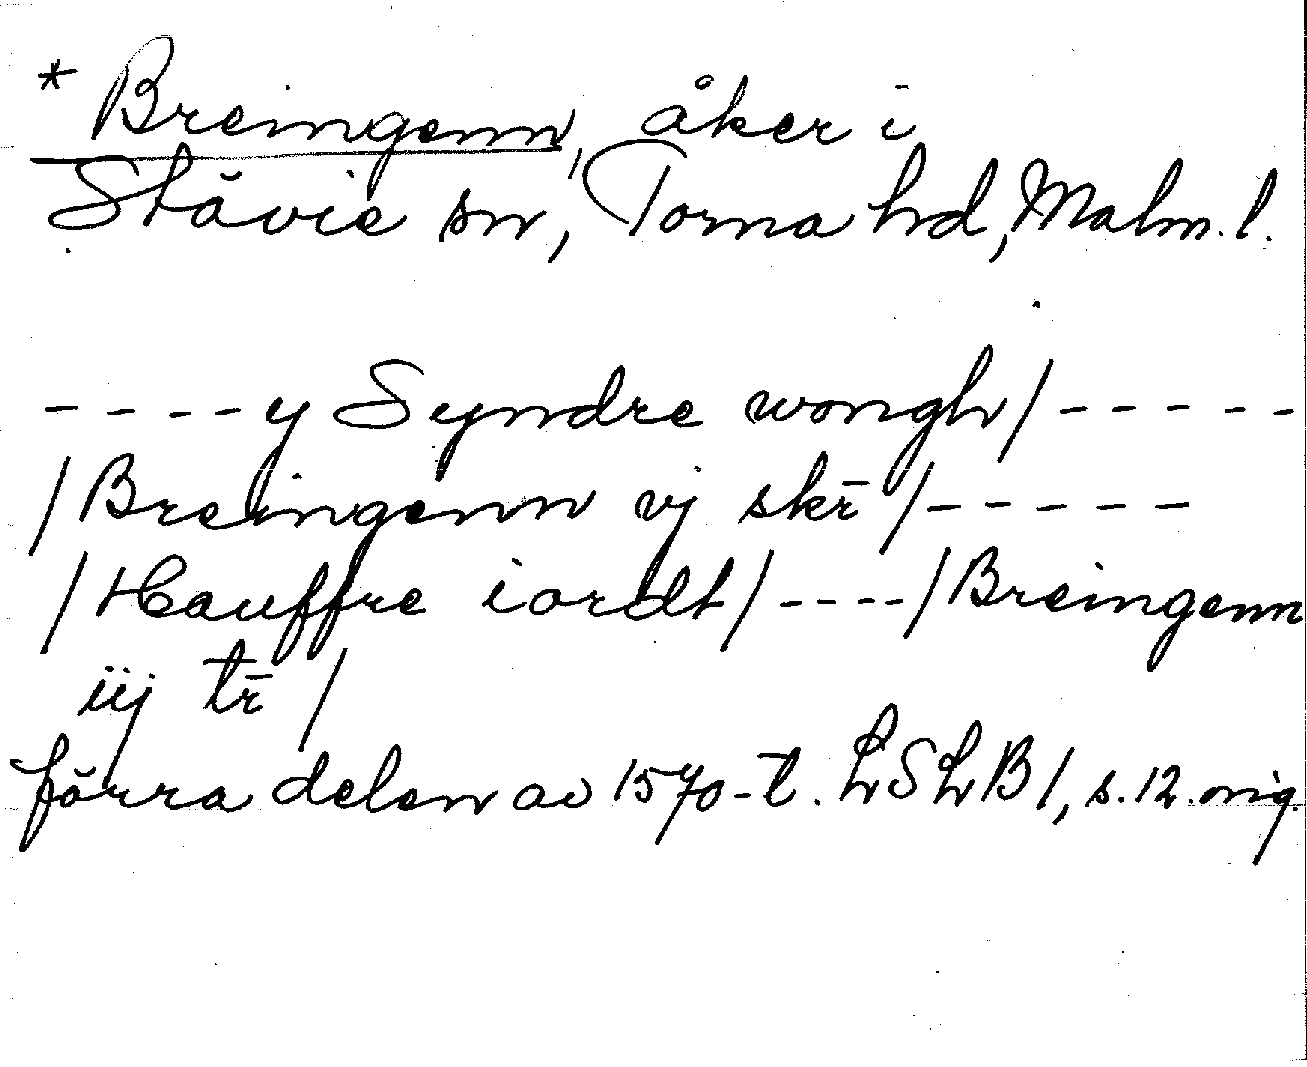 * Breingenn, åker i
Stävie sn, Torna hd, Malm. l.
- - - - y Syndre wongh / - - - - -
/ Breingenn vj skr̄ / - - - - -
/ Hauffre iordt / - - - - / Breingenn
iij tr̄ /
förra delen av 1570-t. LSLB 1, s. 12. orig.